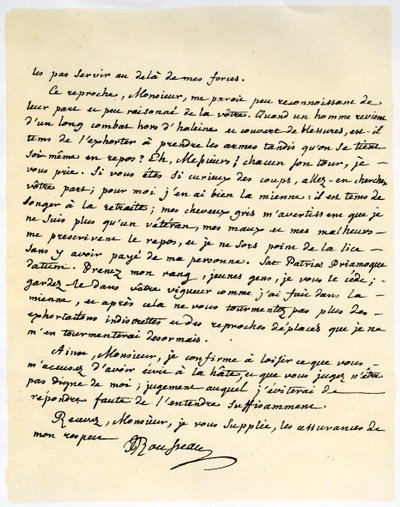 les pas servir au delà de mes forces.
Ce reproche, Monsieur, me paroit peu reconnoissant de
leur part et peu raisonné de la vôtre. Quand un homme revient
d'un long combat hors d'haleine et couvert de blessures, est-il
tems de l'exhorter à prendre les armes tandis qu'on se tient
soi-même en repos? Eh, Messieurs; chacun son tour, je
vous prie. Si vous êtes si curieux des coups, allez-en chercher
vôtre part; pour moi j'en ai bien la mienne: il est tems de
songer à la retraite; mes cheveux gris m'avertissent que je
ne suis plus qu'un vétéran, mes maux et mes malheurs
me prescrivent le repos, et je ne sors point de la lice
sans y avoir payé de ma personne. Sat Patriæ Priamoque
datum. Prenez mon rang, jeunes gens, je vous le cède;
gardez-le dans vôtre vigueur comme j'ai fait dans la
mienne, et après cela ne vous tourmentez pas plus des
exhortations indiscretes et des reproches déplacés que je ne
m'en tourmenterai desormais.
Ainsi, Monsieur, je confirme à loisir ce que vous
m'accusez d'avoir écrit à la hâte et que vous jugez n'être
pas digne de moi; jugement auquel j'éviterai de
répondre faute de l'entendre suffisamment.
Recevez, Monsieur, je vous supplie, les assurances de
mon respect
JJRousseau